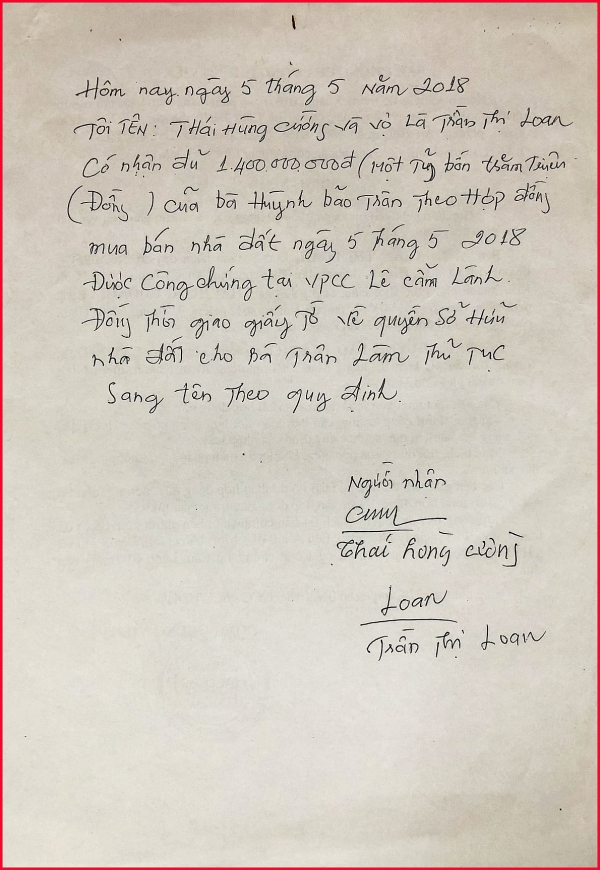 Hôm nay ngày 5 tháng 5 Năm 2018
Tôi TÊN: THái Hùng Cường Và Vợ Là Trần Thị Loan
Có nhận đủ 1.400.000.000đ (Một Tỷ bốn trăm Triệu
(Đồng) của bà Huỳnh bảo Trân Theo Hợp đồng
mua bán nhà đất ngày 5 Tháng 5 2018
Được Công chứng tại VPCC Lê cẩm Lành.
Đồng Thời giao giấy Tờ Về quyền Sở Hữu
nhà đất cho Bà Trân Làm Thủ Tục
Sang tên Theo quy định.
Người nhận
Thái hồng cường
Loan
Trần Thị Loan